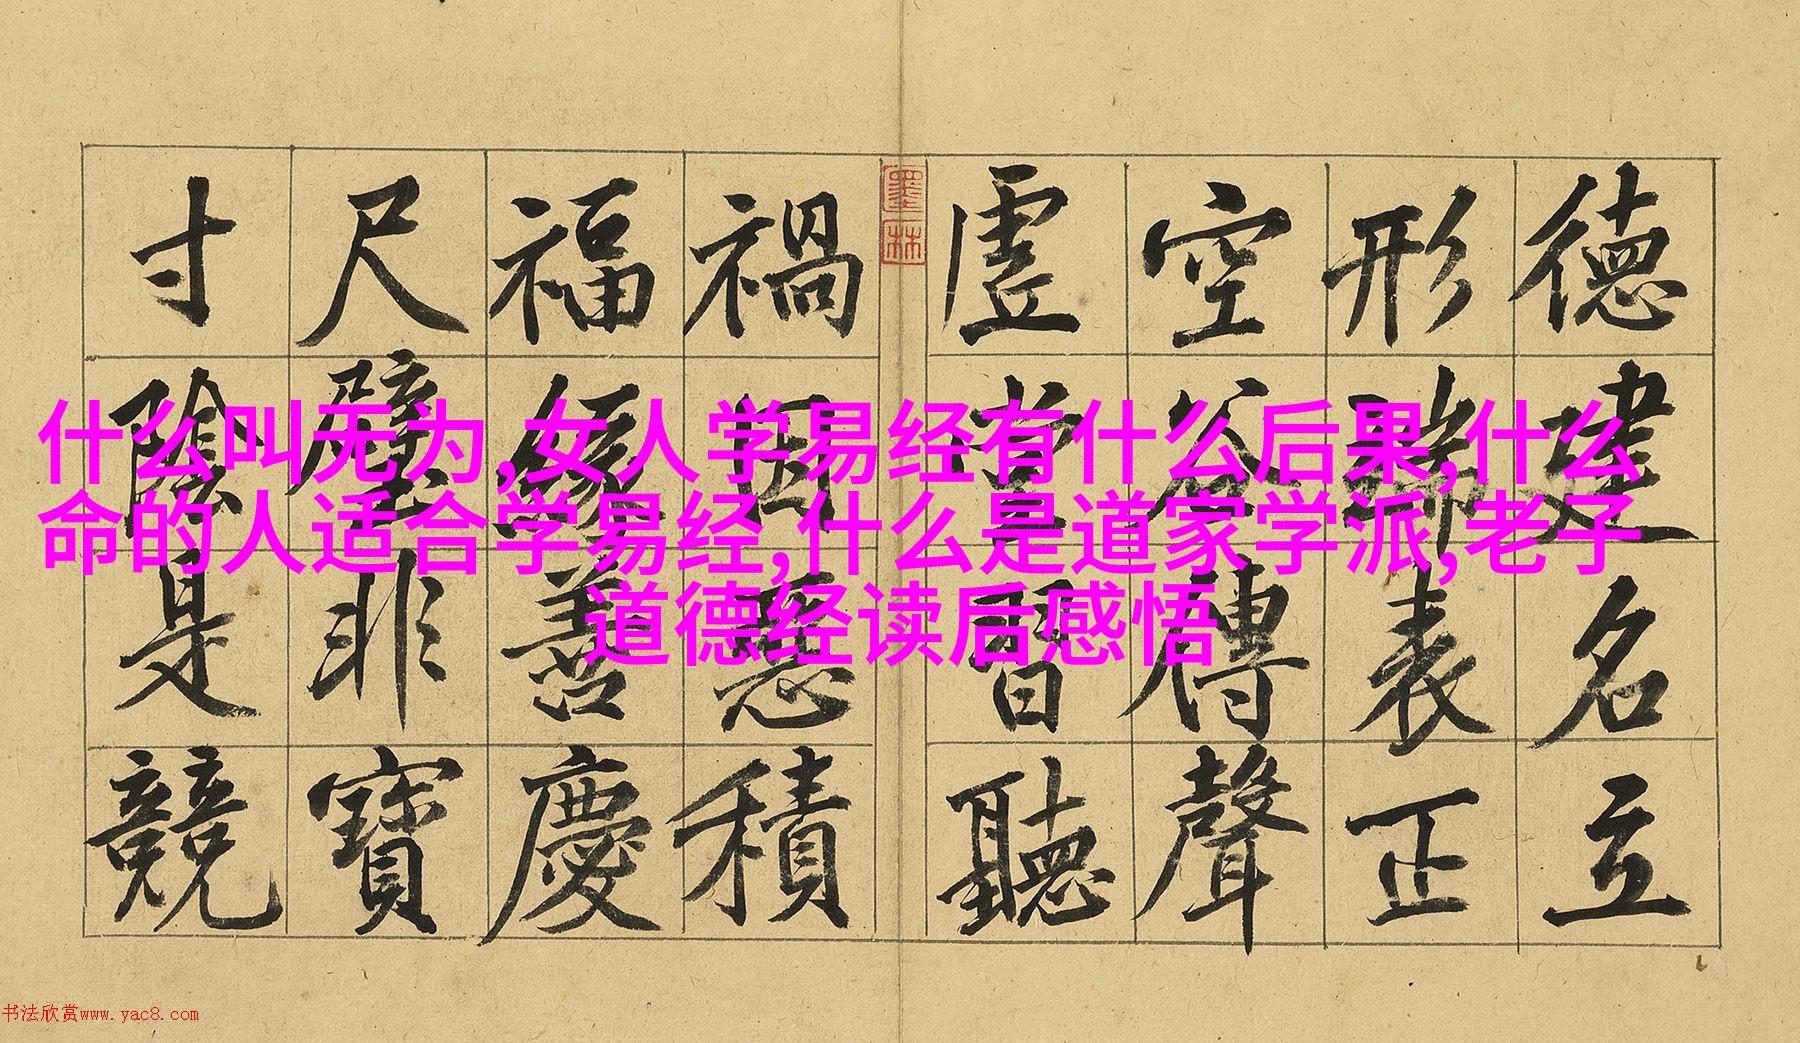 德建名立
形端表正
空谷傳聲
虛堂習聽
禍因惡積
福緣善慶
尺璧非寶
寸陰是競
墨林
什么叫无为,女人学易经有什么后果,什么
命的人适合学易经,什么是道家学派,老子
道德经读后感悟
书法欣赏www.yac8.com